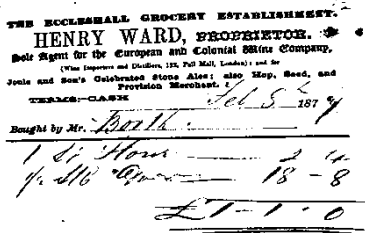 THE ECCLESHALL GROCERY ESTABLISHMENT.
HENRY WARD, PROPRIETOR.
Sole Agent for the European and Colonial Wine Company,
(Wine Importers and Distillers, 122, Pall Mall, London); and for
Joule and Son's Celebrated Stone Ales; also Hop, Seed, and
Provision Merchant.
TERMS:—CASH Feb 187
Bought by Mr. Booth
1 St Flour 2 4
18 - 8
£1 - 1 - 0